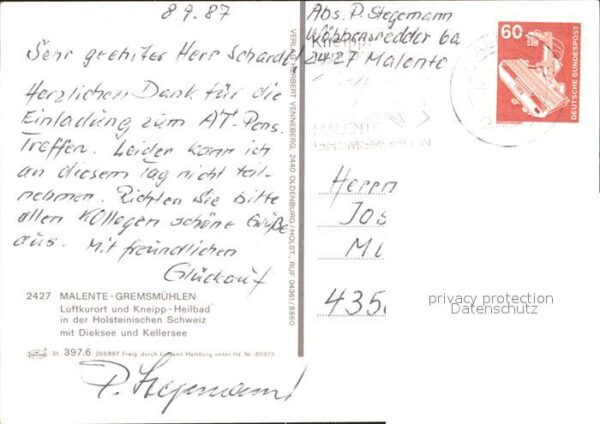 8 9. 87
Sehr geehrter Herr Schardt
Herzlichen Dank für die
Einladung zum AT-Pens.
Treffen. Leider kann ich
an diesem Tag nicht teil-
nehmen. Richten Sie bitte
allen Kollegen schöne Grüße
aus. Mit freundlichen
Glückauf
2427 MALENTE-GREMSMÜHLEN
Luftkurort und Kneipp-Heilbad
in der Holsteinischen Schweiz
mit Dieksee und Kellersee
31 397.6 265897 Freig. durch Luftamt Hamburg unter lfd. Nr. 85975
P. Stegemann
VERLAG HERBERT VENNEBERG, 2440 OLDENBURG/HOLST., RUF 04361/8860
Abs. P. Stegemann
Wöbbensredder 6a
2427 Malente
60
DEUTSCHE BUNDESPOST
Herrn
Jos
Mi
435
privacy protection
Datenschutz